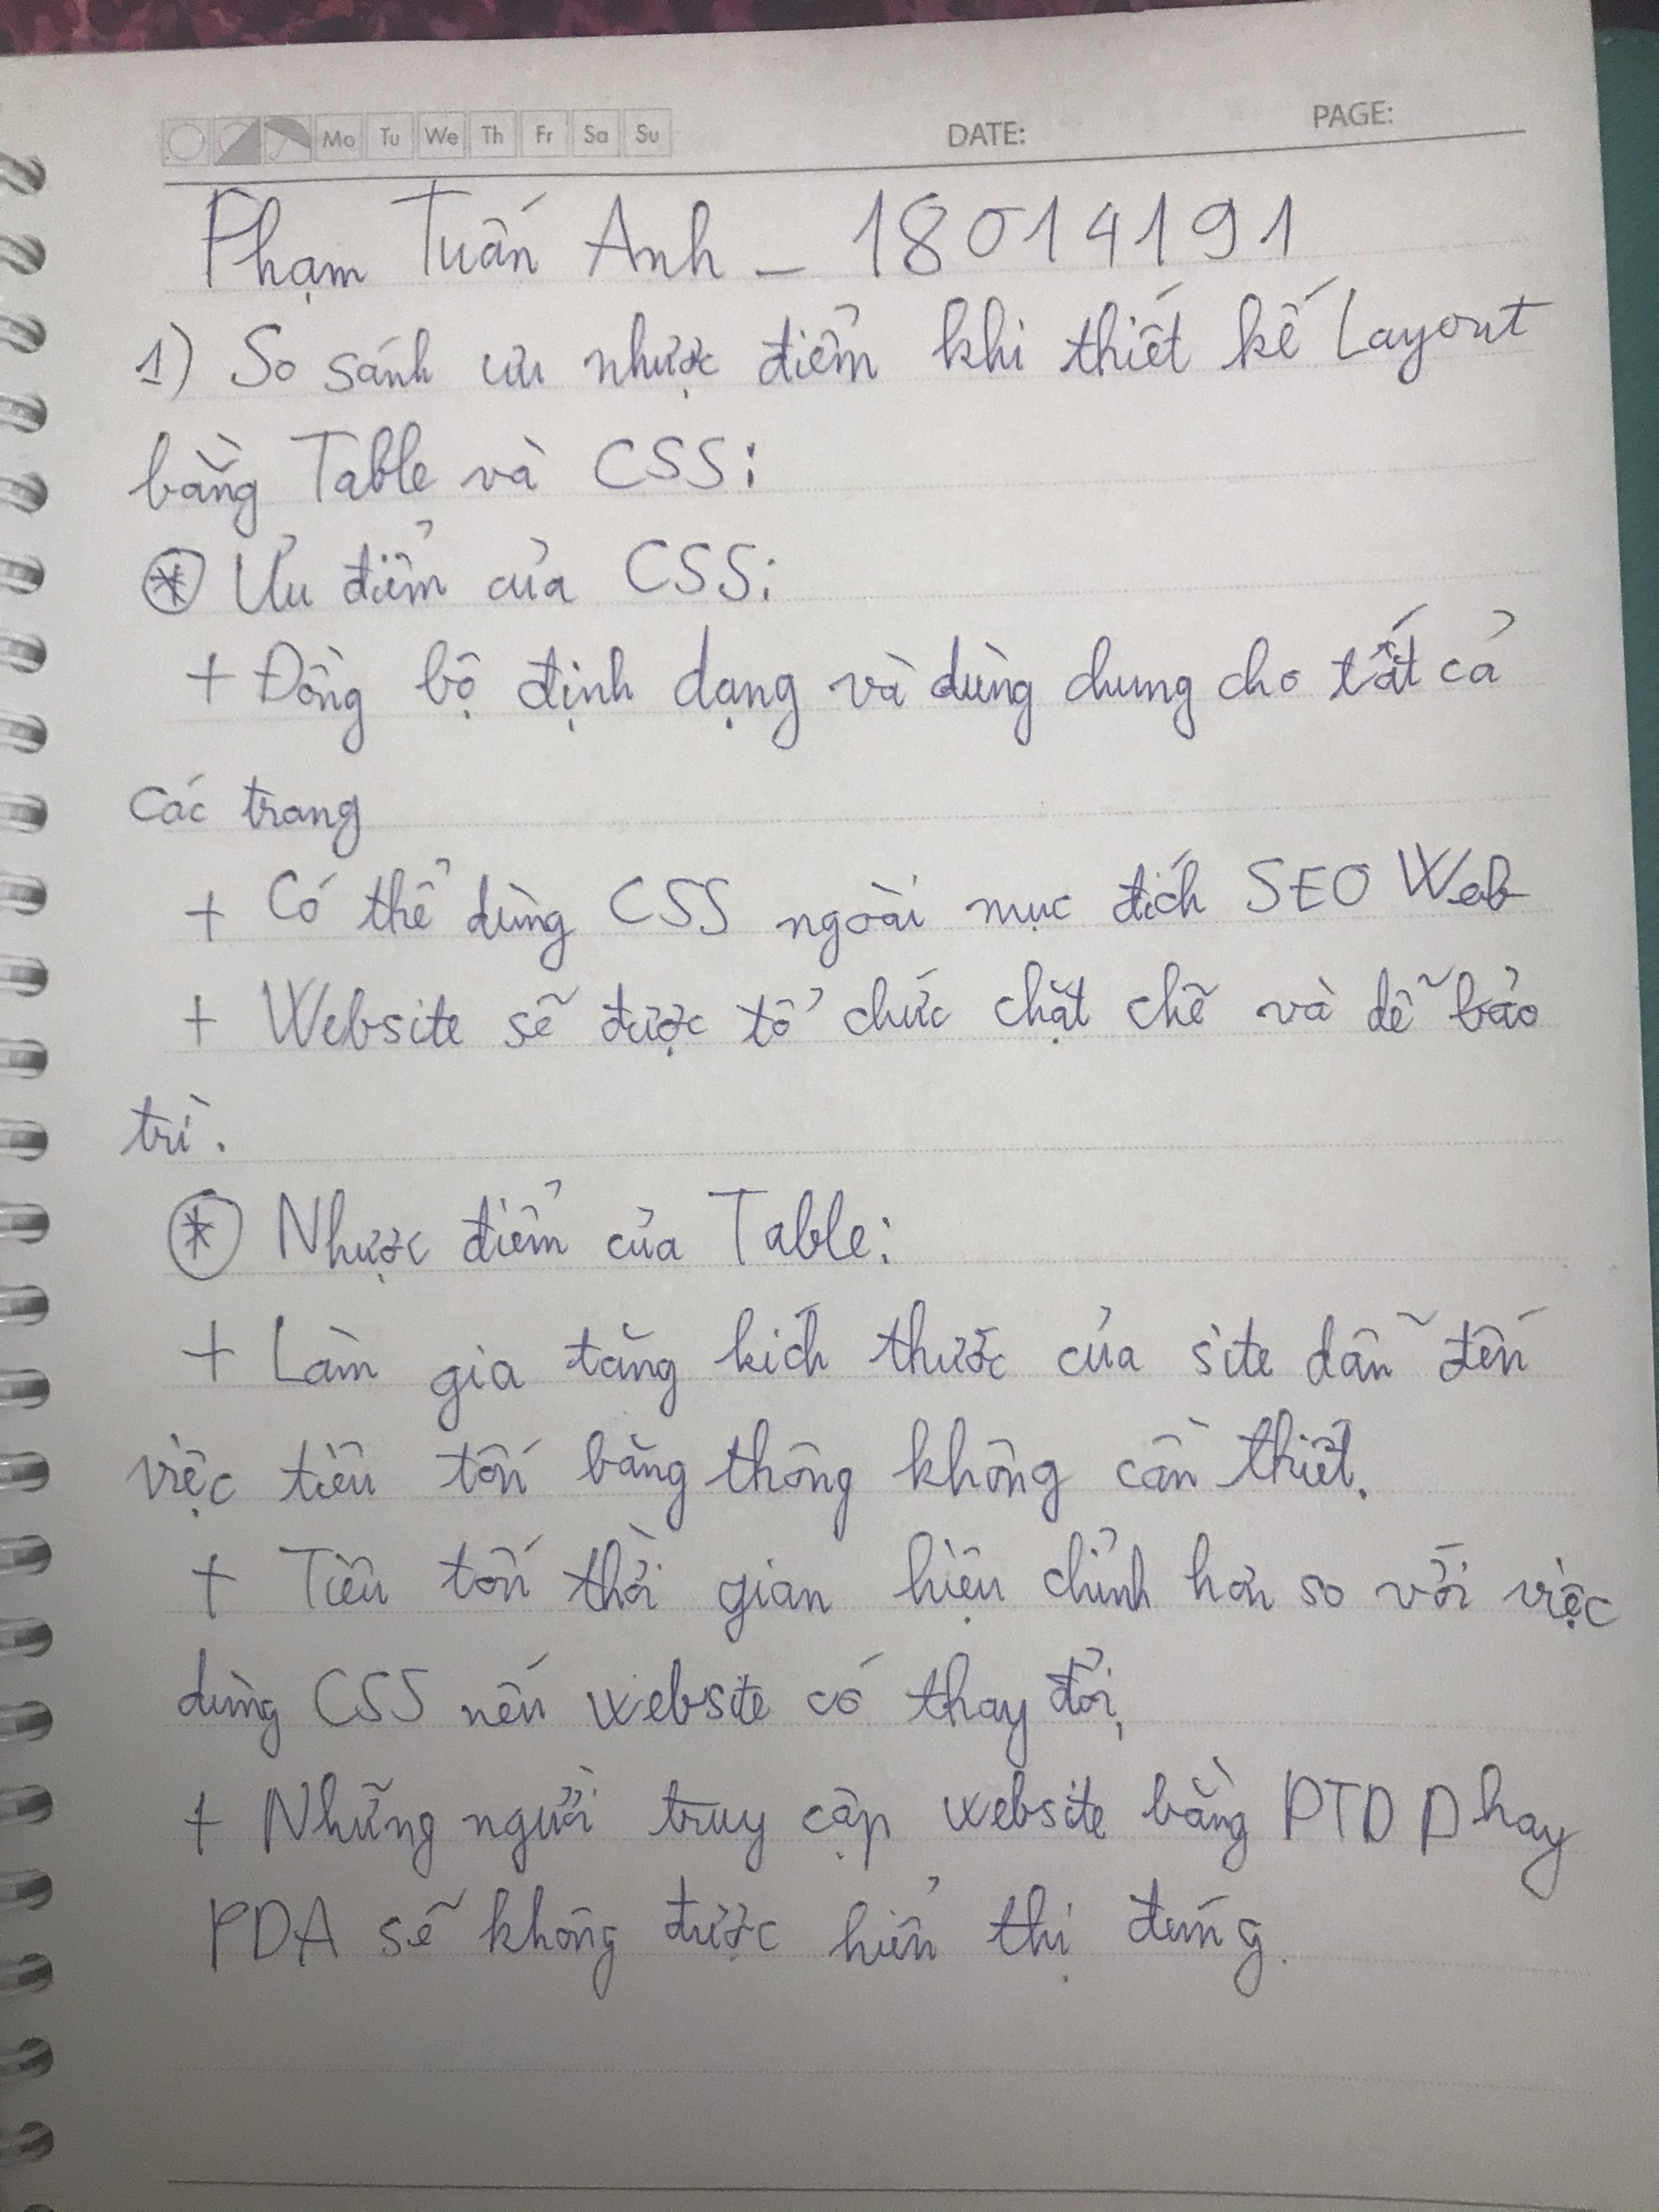 Mo Tu We Th Fr Sa Su DATE: PAGE:
Phạm Tuấn Anh - 18014191
1) So sánh ưu nhược điểm khi thiết kế Layout
bằng Table và CSS:
* Ưu điểm của CSS:
+ Đồng bộ định dạng và dùng chung cho tất cả
các trang
+ Có thể dùng CSS ngoài mục đích SEO Web
+ Website sẽ được tổ chức chặt chẽ và dễ bảo
trì.
* Nhược điểm của Table:
+ Làm gia tăng kích thước của site dẫn đến
việc tiêu tốn băng thông không cần thiết.
+ Tiêu tốn thời gian hiệu chỉnh hơn so với việc
dùng CSS nếu website có thay đổi,
+ Những người truy cập website bằng PTDD hay
PDA sẽ không được hiển thị đúng.